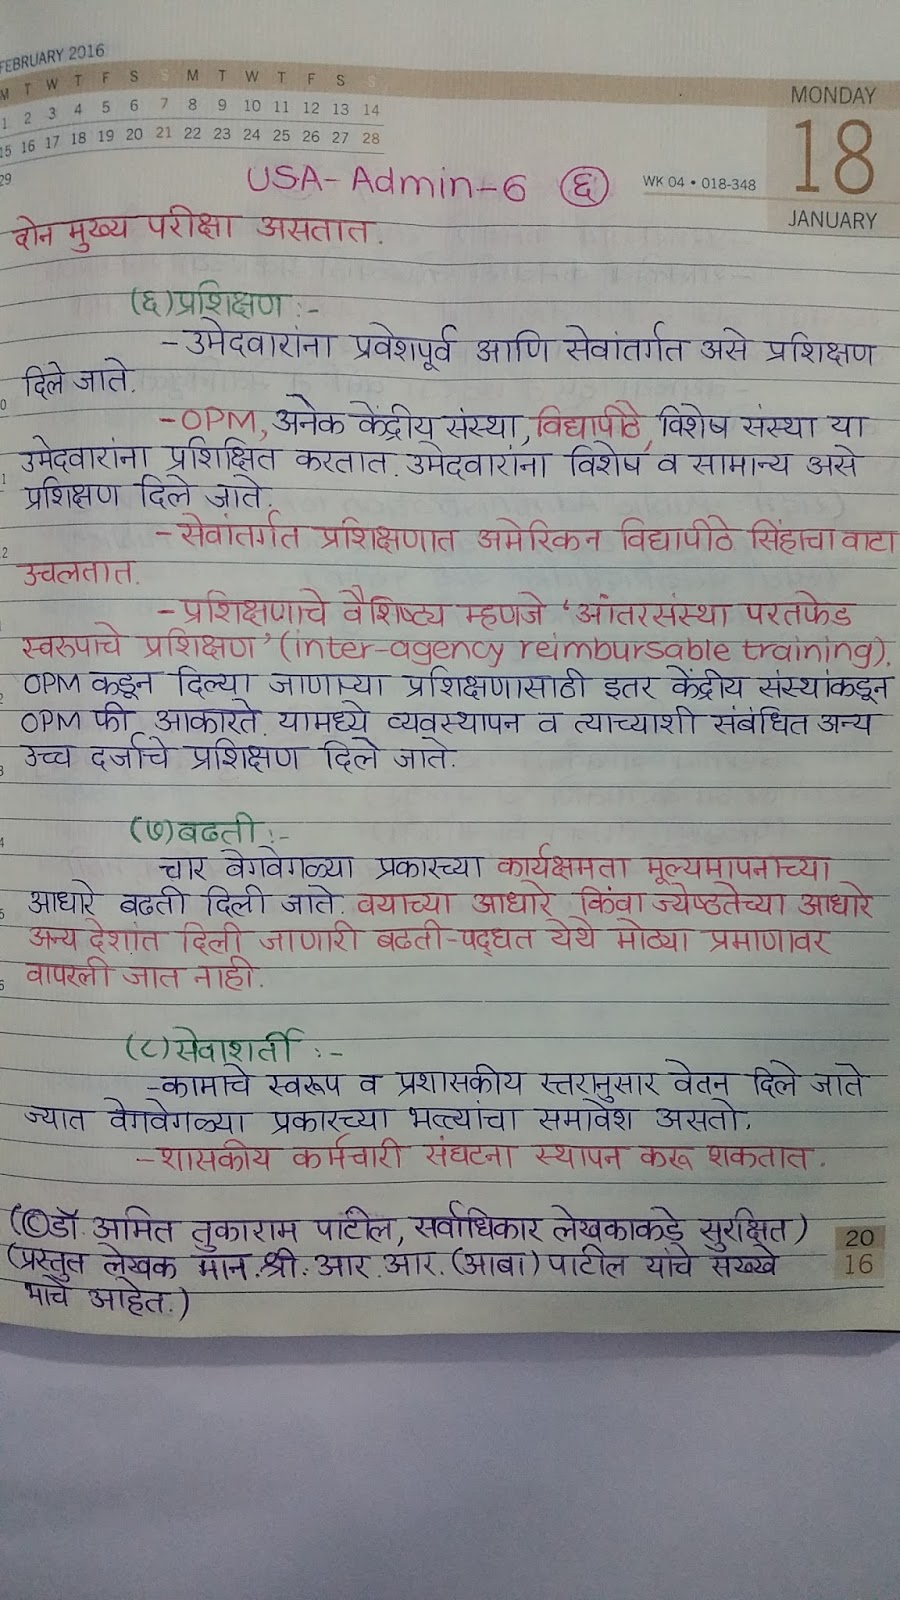 FEBRUARY 2016
M T W T F S S M T W T F S S
1 2 3 4 5 6 7 8 9 10 11 12 13 14
15 16 17 18 19 20 21 22 23 24 25 26 27 28
29
MONDAY
18
JANUARY
WK 04 • 018-348
USA-Admin-6 (६)
दोन मुख्य परीक्षा असतात.
(६) प्रशिक्षण :-
- उमेदवारांना प्रवेशपूर्व आणि सेवांतर्गत असे प्रशिक्षण
दिले जाते.
- OPM, अनेक केंद्रीय संस्था, विद्यापीठे, विशेष संस्था या
उमेदवारांना प्रशिक्षित करतात. उमेदवारांना विशेष व सामान्य असे
प्रशिक्षण दिले जाते.
- सेवांतर्गत प्रशिक्षणात अमेरिकन विद्यापीठे सिंहाचा वाटा
उचलतात.
- प्रशिक्षणाचे वैशिष्ट्य म्हणजे 'आंतरसंस्था परतफेड
स्वरुपाचे प्रशिक्षण' (inter-agency reimbursable training).
OPM कडून दिल्या जाणाऱ्या प्रशिक्षणासाठी इतर केंद्रीय संस्थांकडून
OPM फी आकारते. यामध्ये व्यवस्थापन व त्याच्याशी संबंधित अन्य
उच्च दर्जाचे प्रशिक्षण दिले जाते.
(७) बढती :-
चार वेगवेगळ्या प्रकारच्या कार्यक्षमता मूल्यमापनाच्या
आधारे बढती दिली जाते. वयाच्या आधारे किंवा ज्येष्ठतेच्या आधारे
अन्य देशांत दिली जाणारी बढती-पद्धत येथे मोठ्या प्रमाणावर
वापरली जात नाही.
(८) सेवाशर्ती :-
- कामाचे स्वरूप व प्रशासकीय स्तरानुसार वेतन दिले जाते
ज्यात वेगवेगळ्या प्रकारच्या भत्त्यांचा समावेश असतो.
- शासकीय कर्मचारी संघटना स्थापन करू शकतात.
(©डॉ. अमित तुकाराम पाटील, सर्वाधिकार लेखकाकडे सुरक्षित)
(प्रस्तुत लेखक मान. श्री. आर. आर. (आबा) पाटील यांचे सख्खे
भाचे आहेत.)
20
16